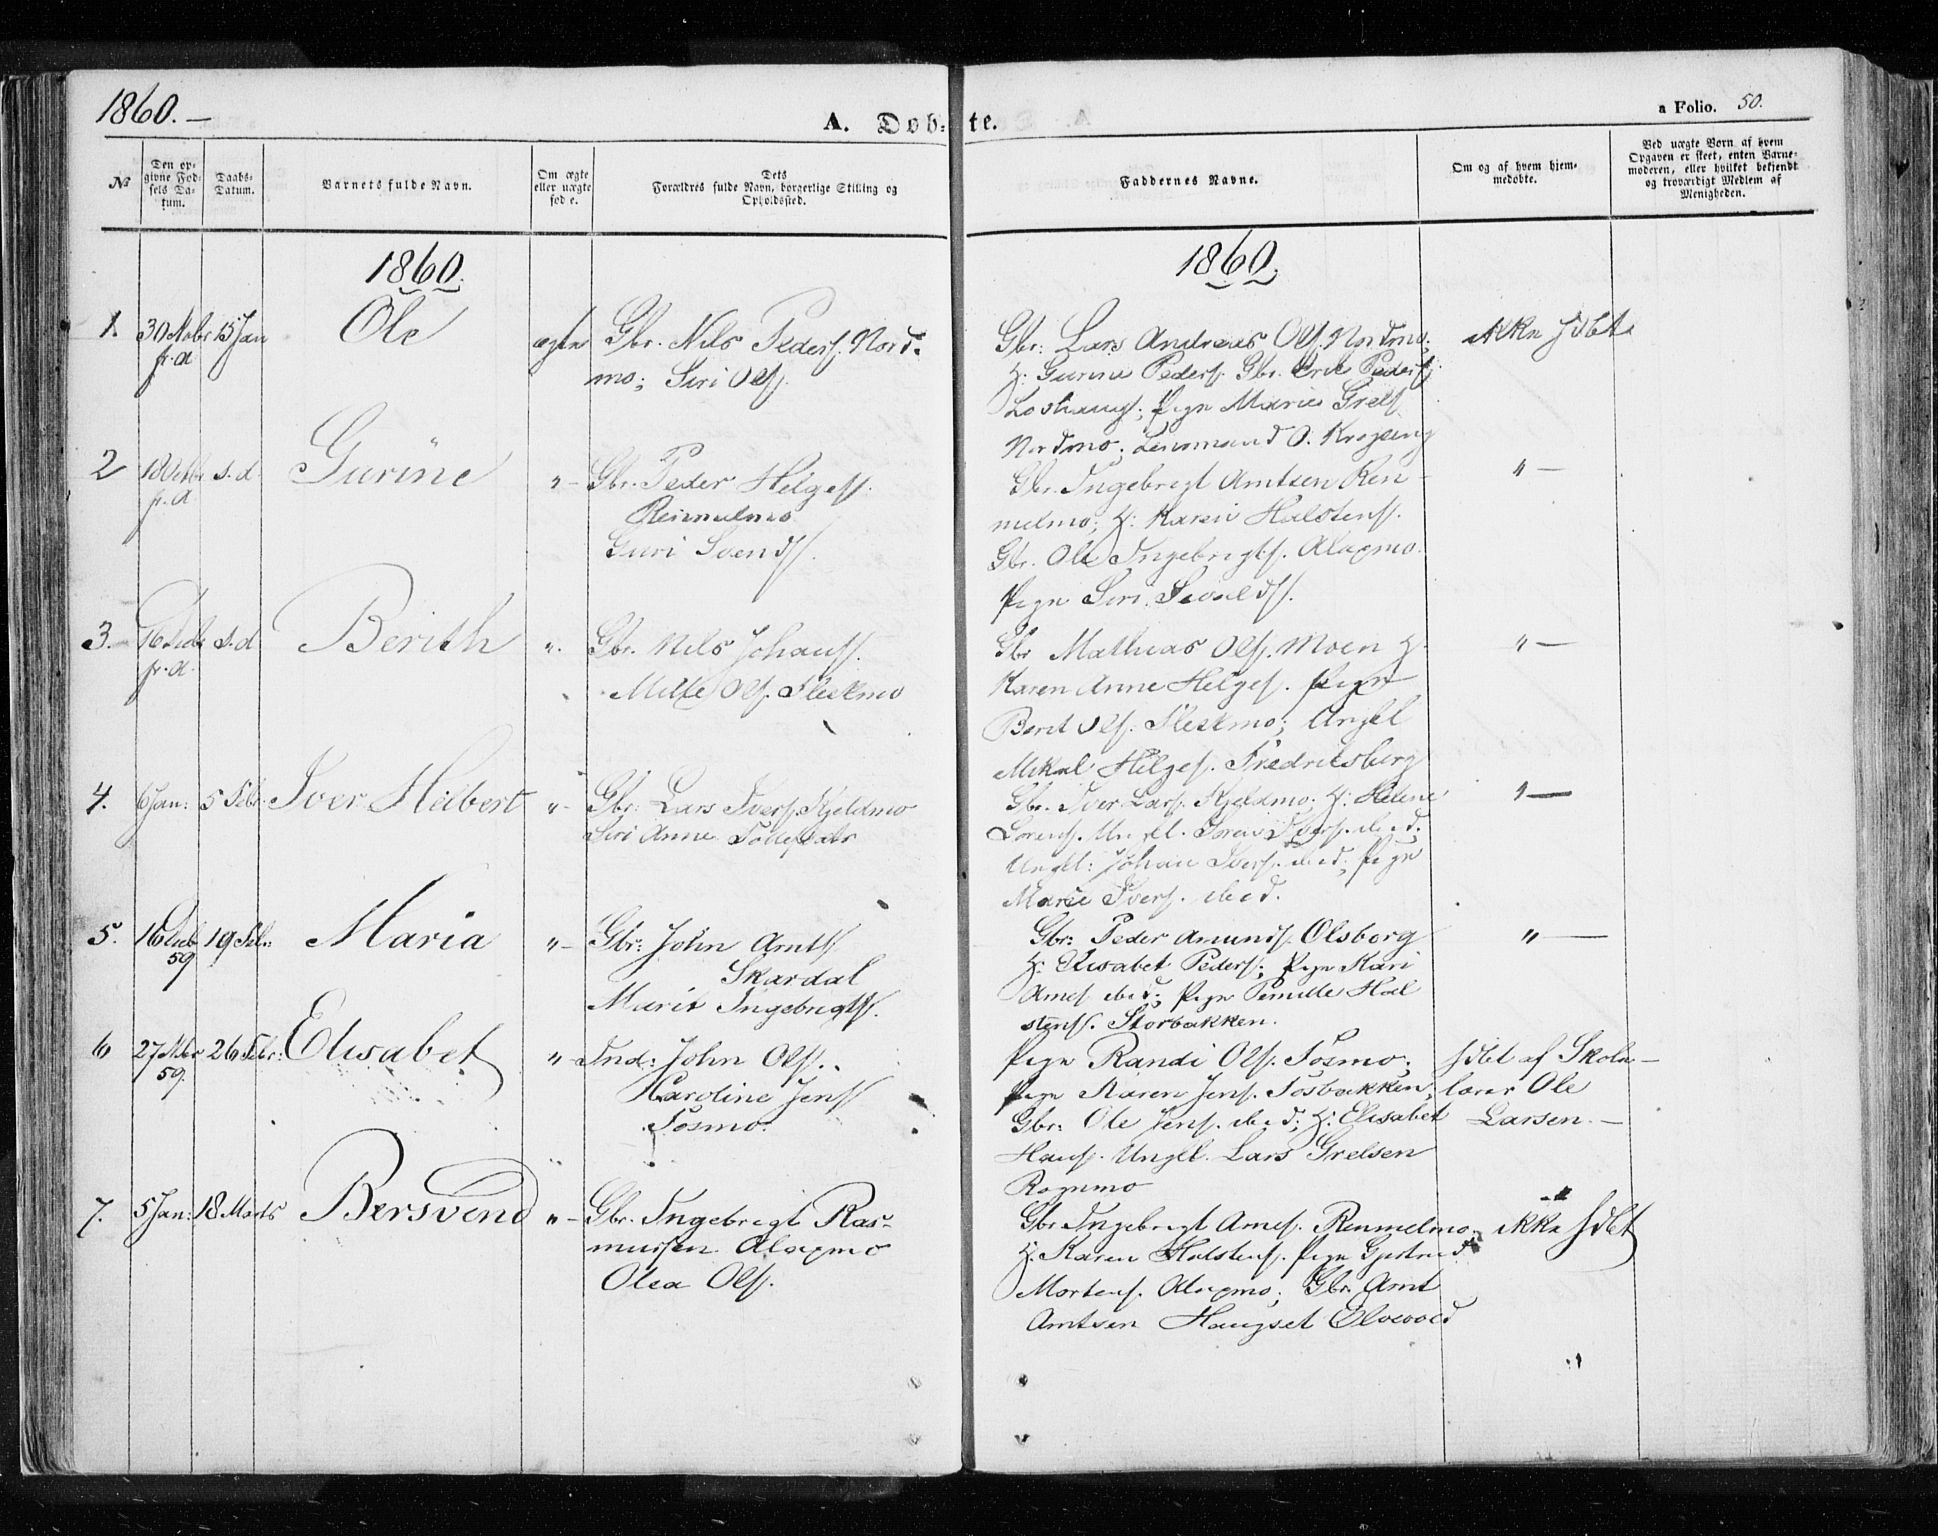 1860.—
A. Døb-
te.
a Folio. 50.
№
Den op-
givne Fød-
sels Da-
tum.
Daabs-
Datum.
Barnets fulde Navn.
Om ægte
eller uægte
fød e.
Dets
Forældres fulde Navn, borgerlige Stilling og
Opholdssted.
Faddernes Navne.
Om og af hvem hjem-
medøbte.
Ved uægte Børn af hvem
Opgaven er skeet, enten Barne-
moderen, eller hvilket bekjendt
og troværdigt Medlem af
Menigheden.
1860.
1860.
1. 30 Nobr 15 Jan Ole ægte Gbr. Nils Peders. Nord-
f. A
mo; Siri Ols.
Gbr: Lars Andreas Ols. Nordmo; ikke hdbt
H: Gurine Peders. Gbr. Erik Peders.
; Pigen Marie Grels.
Nordmo; Lensmand O. Krogseng
2 18 s. d. Gurine "— Gbr. Peder Helges.
f. A
Reinmelmo
Guri Svends.
Gbr. Ingebrigt Arntsen Ren- "—
melmo; H: Karen Halstens.
Gbr. Ole Ingebrigts. Alapmo.
Pigen Siri
3. 16 s. d Berith ". Gbr. Nils Johans.
f. A.
Mille Ols. Fleskmo
Gbr Mathias Ols. Moen H. "—
Karen Anne Helges. Pigen
Berit Ols. Fleskmo; Ungkl
Mikal Helges. Fredriksberg
4. 6 Jan: 5 Febr. Iver Heibert "— Gbr: Lars Ivers. Kjeldmo
Siri Anne Tollefsdtr
Gbr. Iver Lars. Kjeldmo; H: Helene "—
Lorens. Ungkl. Sören Ivers. ibid;
Ungkl: Johan Ivers. ibid; Pigen
Marie Ivers. ibid.
5. 16 Decb 19 Feb: Maria "— Gbr: John Arnts.
59
Skardal
Marit Ingebrigts.
Gbr: Peder Amunds. Olsborg "—
H: Elisabet Peders; Pigen Kari
Arnes. ibid; Pigen Pernille Hal
stens. Storbakken.
6 27 Nbr 26 Febr: Elisabet "— Ind: John Ols.
59.
Karoline Jens.
Fosmo.
Pigen Randi Ols. Fosmo; hdbt af Skole—
Pigen Maren Jens. Fosbakken; lærer Ole
Gbr: Ole Jens. ibid; H: Elisabet Larsen.—
Hans. Ungkl. Lars Grelsen
Rognmo
7. 5 Jan: 18 Marts Bersvend "— Gbr. Ingebrigt Ras-
mussen Alapmo
Olea Ols.
Gbr Ingebrigt Arnes. Renmelmo; ikke hdbt
H: Karen Halstens. Pigen Gjertrud
Mortens. Alapmo; Gbr. Arnt
Arntsen Haugset Elvevold